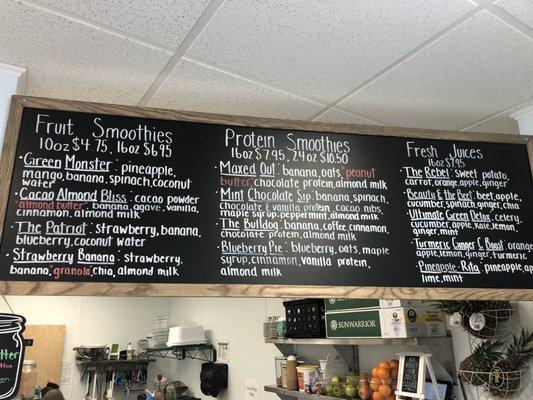 Fruit Smoothies
10oz $4.75, 16oz $6.95
• Green Monster: pineapple,
mango, banana, spinach, coconut
water
• Cacao Almond Bliss: cacao powder
almond butter, banana, agave, vanilla,
cinnamon, almond milk
• The Patriot: strawberry, banana,
blueberry, coconut water
• Strawberry Banana: strawberry,
banana, granola, chia, almond milk
Protein Smoothies
16oz $7.95, 24oz $10.50
• Maxed Out: banana, oats, peanut
butter, chocolate protein, almond milk
• Mint Chocolate Sip: banana, spinach,
chocolate & vanilla protein, cacao nibs,
maple syrup, peppermint, almond milk
• The Bulldog: banana, coffee, cinnamon,
chocolate protein, almond milk
• Blueberry Pie: blueberry, oats, maple
syrup, cinnamon, vanilla protein,
almond milk
Fresh Juices
16oz $7.95
• The Rebel: sweet potato,
carrot, orange, apple, ginger
• Beauty & the Beet: beet, apple,
cucumber, spinach, ginger, chia
• Ultimate Green Detox: celery,
cucumber, apple, kale, lemon,
ginger, mint
• Turmeric Ginger C Boost: orange
apple, lemon, ginger, turmeric
• Pineapple-Rita: pineapple, app
lime, mint
SUNWARRIOR
utter